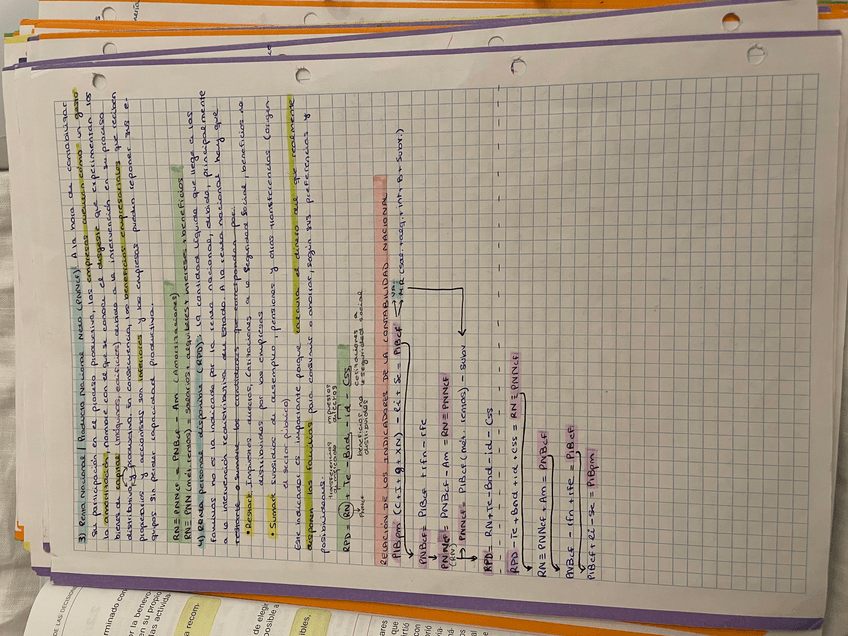 3) Renta Nacional / Producto Nacional Neto (PNNcf) A la hora de contabilizar
su participación en el proceso productivo, las empresas cuentan como un gasto
la amortización, nombre con el que se conoce el desgaste que experimentan los
bienes de capital (máquinas, edificios) debido a la intervención en su proceso
distributivo y productivo. En consecuencia, los beneficios empresariales que reciben
propietarios y accionistas son menores y las empresas pueden reponer sus e-
quipos sin perder capacidad productiva.
RN ≡ PNNcf = PNBcf - Am (Amortizaciones)
RN = PNN (mét. rentas) = salarios + alquileres + intereses + beneficios
4) Renta personal disponible (RPD): la cantidad líquida que llega a las
familias no es la indicada por la renta nacional, debido, principalmente
a la intervención redistributiva del Estado. A la renta nacional hay que
restarle o sumarle las cantidades que correspondan por:
• Restar: Impuestos directos, Cotizaciones a la Seguridad Social, beneficios no
distribuidos por las empresas
• Sumar: subsidios de desempleo, pensiones y otras transferencias (origen
el sector público)
Este indicador es importante porque el dinero del que realmente
disponen las familias para consumir o ahorrar, según sus preferencias y
posibilidades.
Transferencias impuestos
directos
RPD = RN + Te - Bnd - id - Css
PNNcf beneficios no
distribuidos
cotizaciones a
la seguridad social
RELACIÓN DE LOS INDICADORES DE LA CONTABILIDAD NACIONAL
PIBpm (C + I + g + XN) - Ii + Sc = PIBcf → VA:
→ MR (sal. + alq. + int. + B + subv.)
PNBcf = PIBcf + rfn - rfe
PNNcf = PNBcf - Am = RN ≡ PNNcf
(RN)
→ PNNcf = PIBcf (mét. rentas) - subv
RPD = RN + Te - Bnd - id - Css
RPD - Te + Bnd + id + Css = RN ≡ PNNcf
RN ≡ PNNcf + Am = PNBcf
PNBcf - rfn + rfe = PIBcf
PIBcf + Ii - Sc = PIBpm
DE LAS DECISION
a recom.